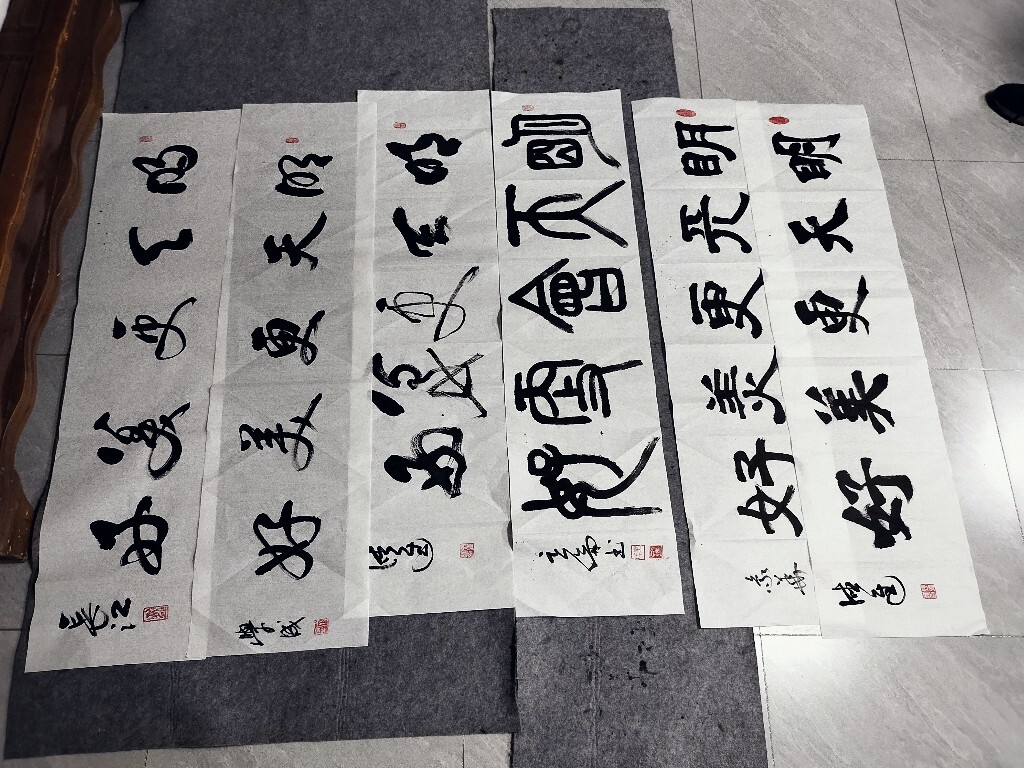 明天更美好
明天更美好
明天會更好
明天更美好
明天更美好
明天更美好
长江